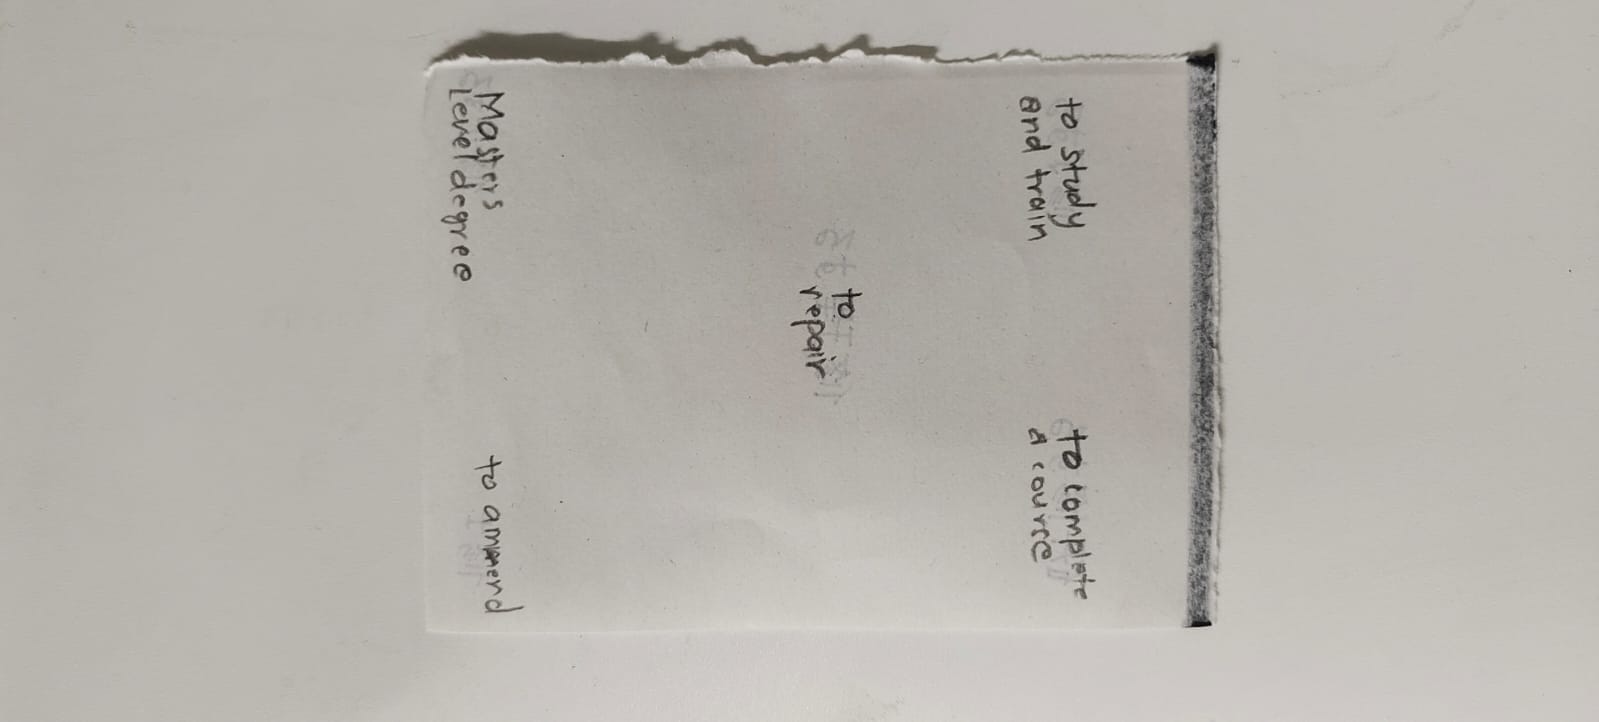 to study
and train
to complete
a course
to
repair
Masters
Level degree
to ammend